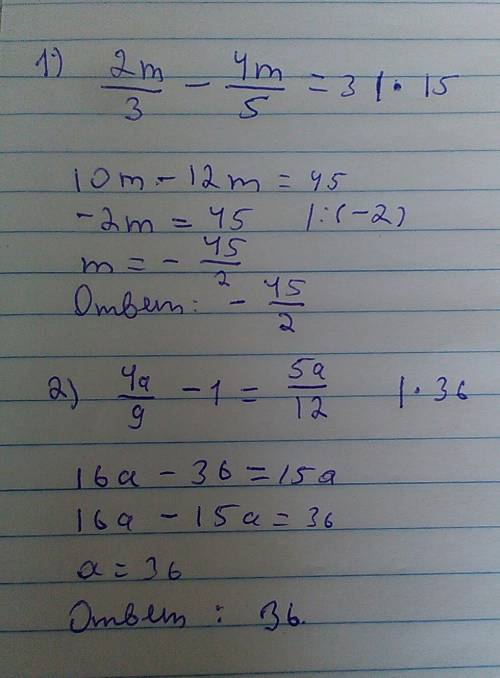 1) 2m/3 - 4m/5 = 3 | · 15
10m - 12m = 45
-2m = 45 | : (-2)
m = - 45/2
Ответ: - 45/2
2) 4a/9 - 1 = 5a/12 | · 36
16a - 36 = 15a
16a - 15a = 36
a = 36
Ответ : 36.